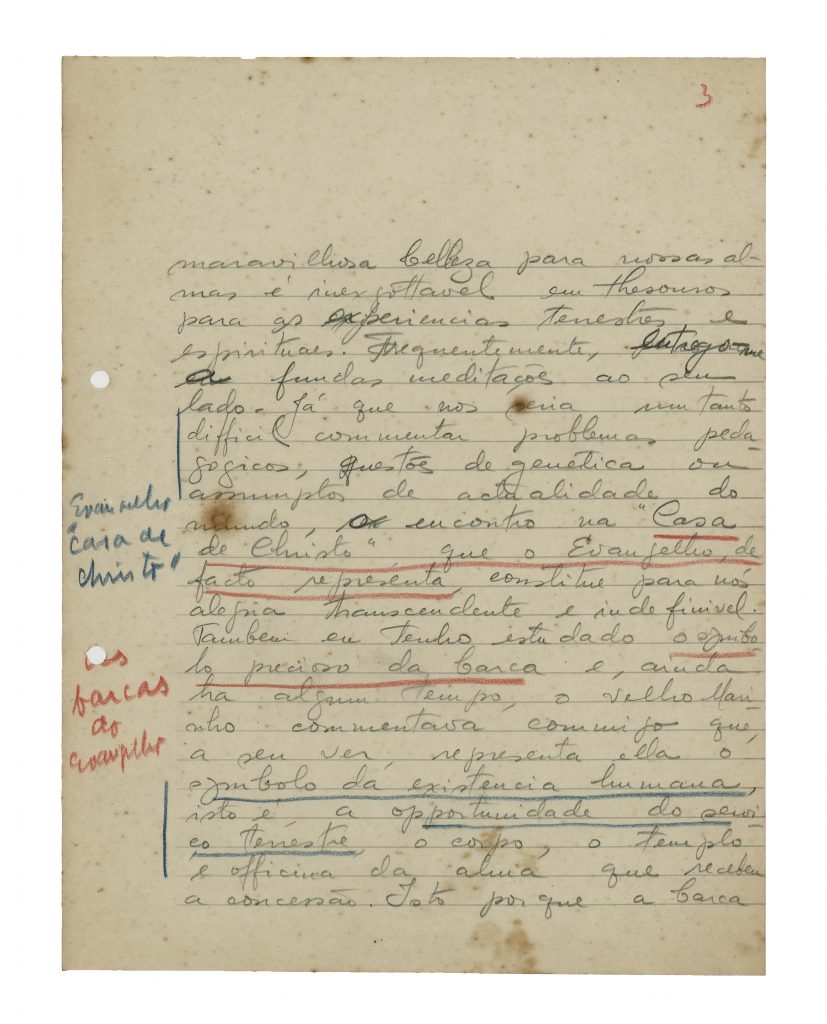 3
maravilhosa belleza para nossas al-
mas é inexgottavel em thesouros
para as experiencias terrestres e
espirituaes. Frequentemente, entrego-me
a fundas meditações ao seu
lado. Já que nos seria um tanto
difficil commentar problemas peda-
gogicos, questões de genética ou
assumptos de actualidade do
mundo, o encontro na "Casa
de Christo" que o Evangelho, de
facto representa, constitue para nós
alegria transcendente e indefinivel.
Tambem eu tenho estudado o symbo-
lo precioso da barca e, ainda
ha algum tempo, o velho Mari-
nho commentava commigo que,
a seu ver, representa ella o
symbolo da existencia humana,
isto é, a opportunidade do servi-
ço terrestre, o corpo, o templo
e officina da alma que recebeu
a concessão. Isto porque a barca
Evangelho
"casa de
Christo"
as
barcas
do
Evangelho